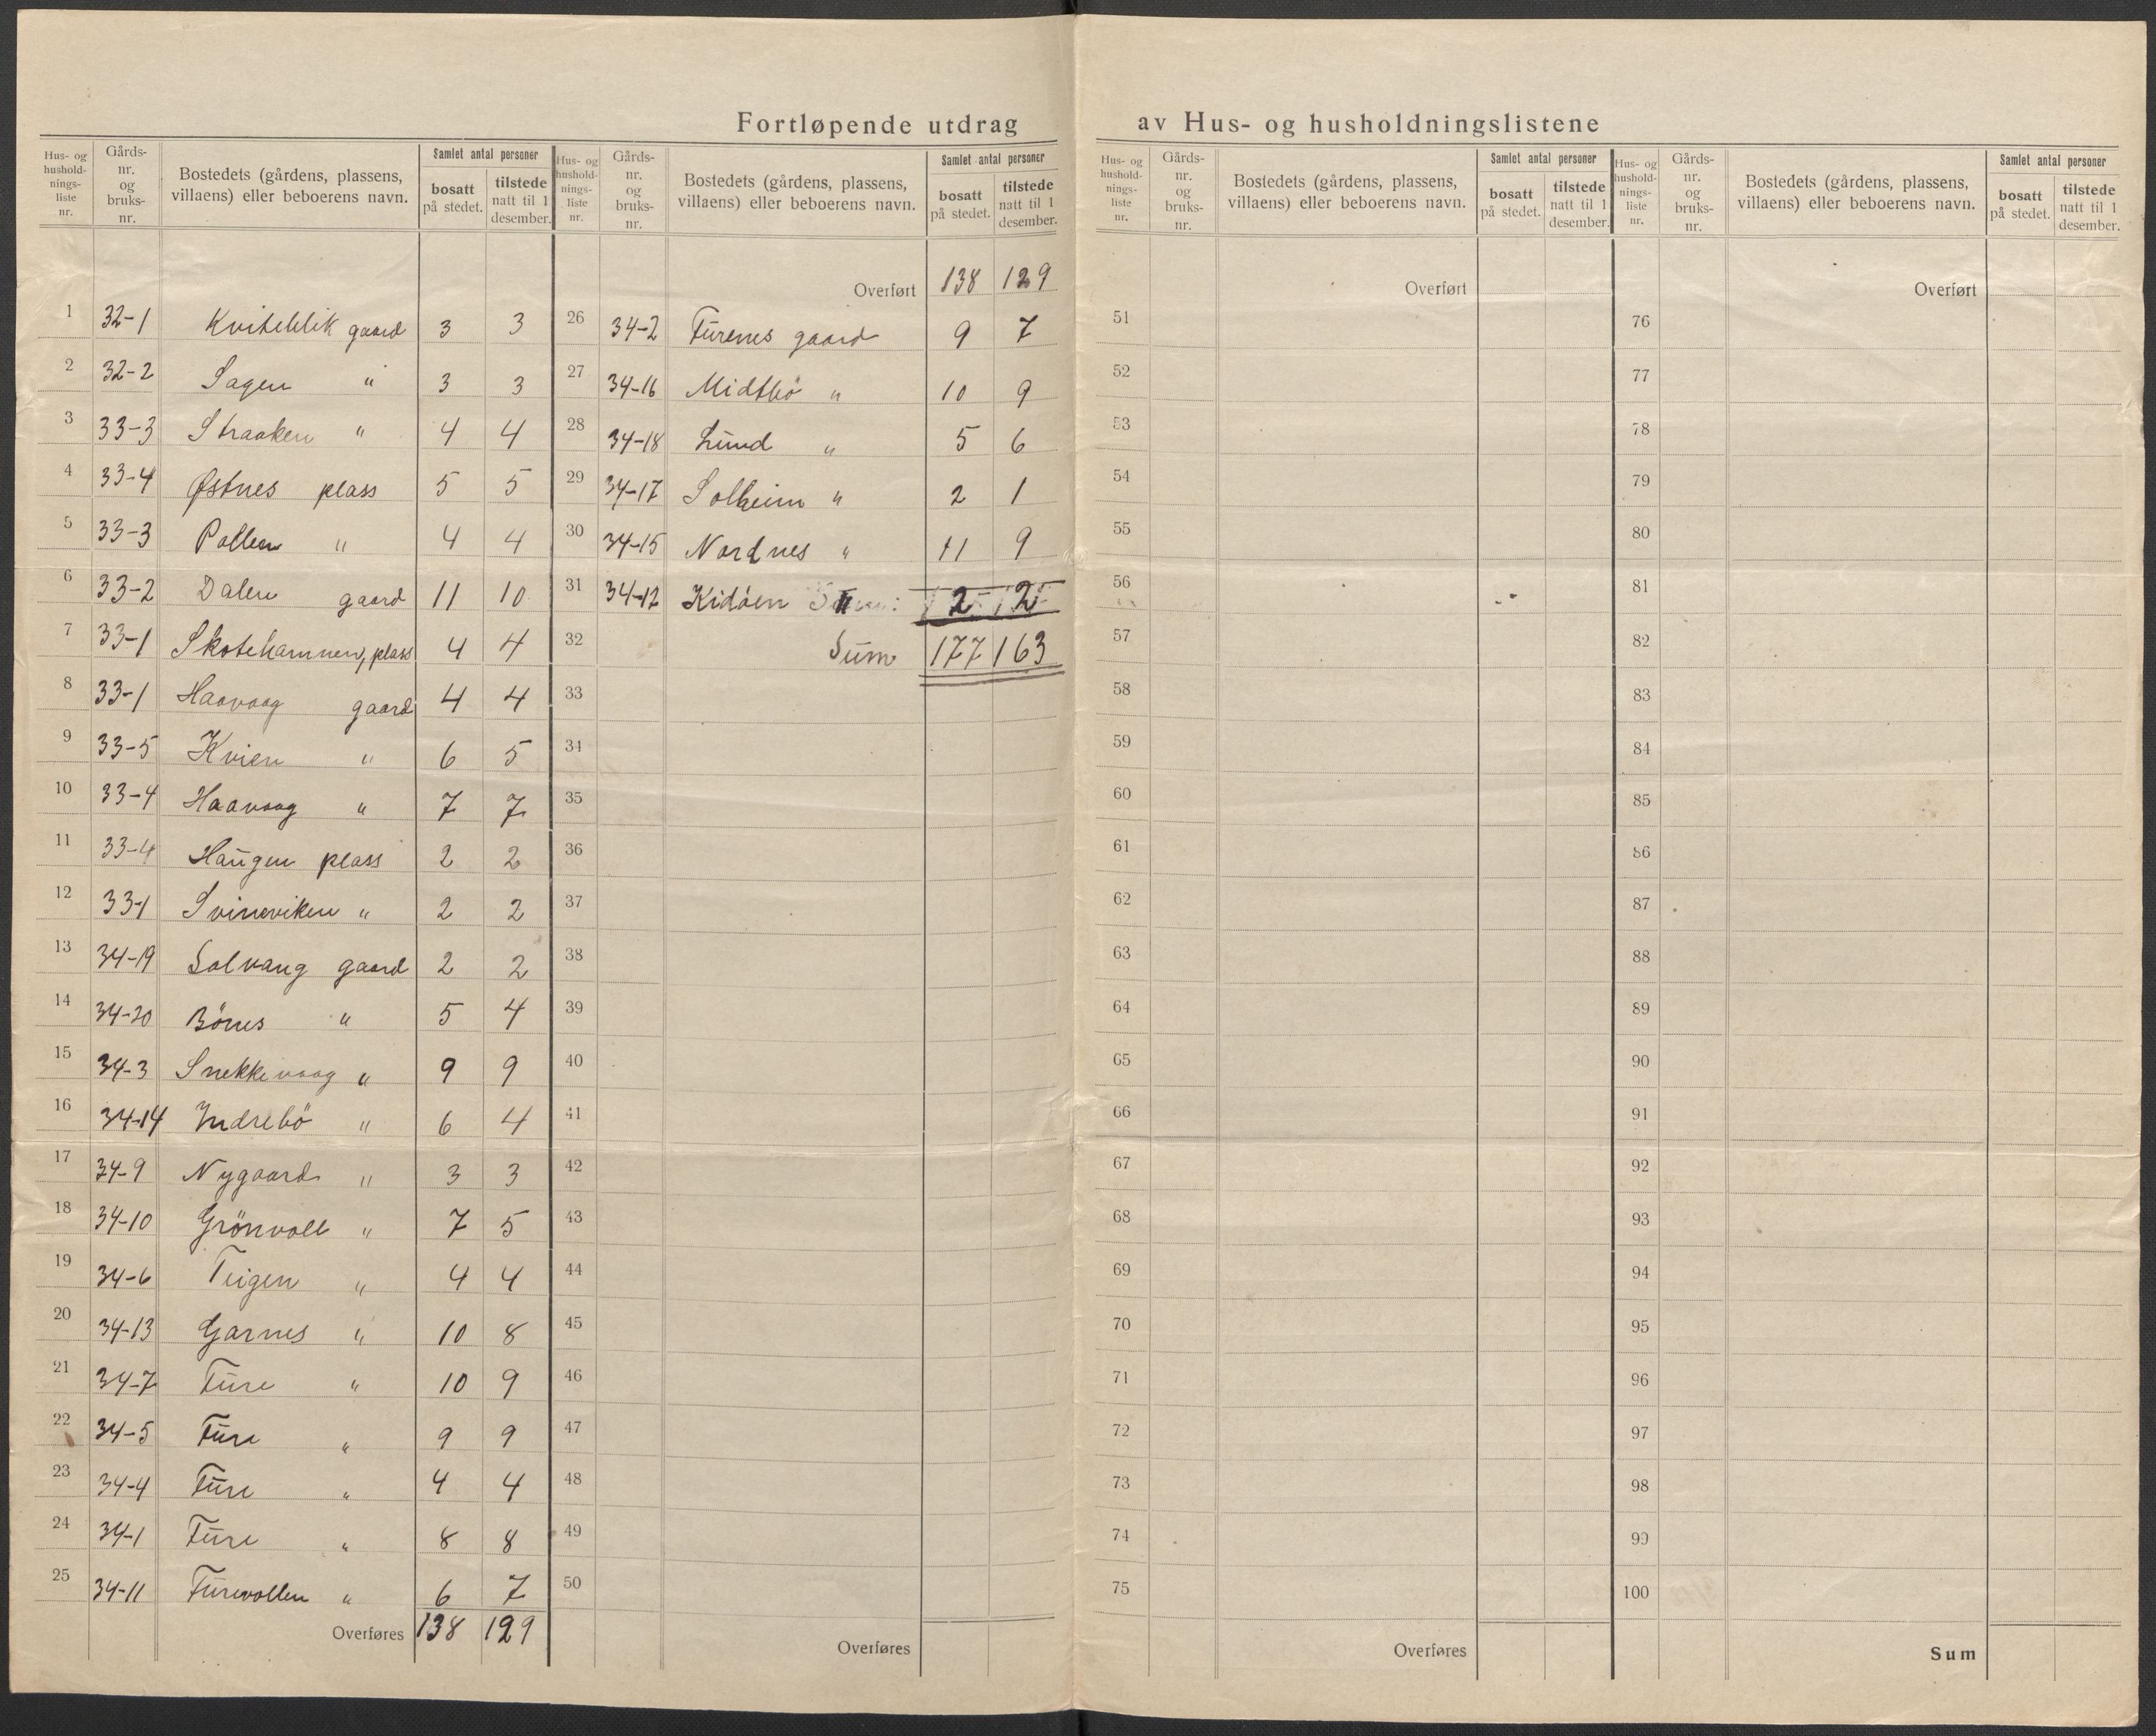 Fortløpende utdrag av Hus- og husholdningslistene
Hus- og hushold-nings-liste nr. Gårds-nr. og bruks-nr. Bostedets (gårdens, plassens, villaens) eller beboerens navn. Samlet antal personer bosatt på stedet. tilstede natt til 1 desember.
1 32-1 Kviteklik gaard 3 3
2 32-2 Sagen " 3 3
3 33-3 Straaken " 4 4
4 33-4 Østnes plass 5 5
5 33-3 Pollen " 4 4
6 33-2 Dalen gaard 11 10
7 33-1 Skotehamnen, plass 4 4
8 33-1 Haavaag gaard 4 4
9 33-5 Kvien " 6 5
10 33-4 Haavaag " 7 7
11 33-4 Haugen plass 2 2
12 33-1 Svineviken " 2 2
13 34-19 Solvang gaard 2 2
14 34-20 Bönes " 5 4
15 34-3 Snekkevaag " 9 9
16 34-14 Indrebö " 6 4
17 34-9 Nygaard " 3 3
18 34-10 Grönvoll " 7 5
19 34-6 Teigen " 4 4
20 34-13 Garnes " 10 8
21 34-7 Fure " 10 9
22 34-5 Fure " 9 9
23 34-4 Fure " 4 4
24 34-1 Fure " 8 8
25 34-11 Furevollen " 6 7
Overføres 138 129
Hus- og hushold-nings-liste nr. Gårds-nr. og bruks-nr. Bostedets (gårdens, plassens, villaens) eller beboerens navn. Samlet antal personer bosatt på stedet. tilstede natt til 1 desember.
Overført 138 129
26 34-2 Furenes gaard 9 7
27 34-16 Midtbö " 10 9
28 34-18 Lund " 5 6
29 34-17 Solheim " 2 1
30 34-15 Nordnes " 11 9
31 34-12 Kidöen " 2 2
32 Sum 177 163
33
34
35
36
37
38
39
40
41
42
43
44
45
46
47
48
49
50
Overføres
Hus- og hushold-nings-liste nr. Gårds-nr. og bruks-nr. Bostedets (gårdens, plassens, villaens) eller beboerens navn. Samlet antal personer bosatt på stedet. tilstede natt til 1 desember.
Overført
51
52
53
54
55
56
57
58
59
60
61
62
63
64
65
66
67
68
69
70
71
72
73
74
75
Overføres
Hus- og hushold-nings-liste nr. Gårds-nr. og bruks-nr. Bostedets (gårdens, plassens, villaens) eller beboerens navn. Samlet antal personer bosatt på stedet. tilstede natt til 1 desember.
Overført
76
77
78
79
80
81
82
83
84
85
86
87
88
89
90
91
92
93
94
95
96
97
98
99
100
Sum